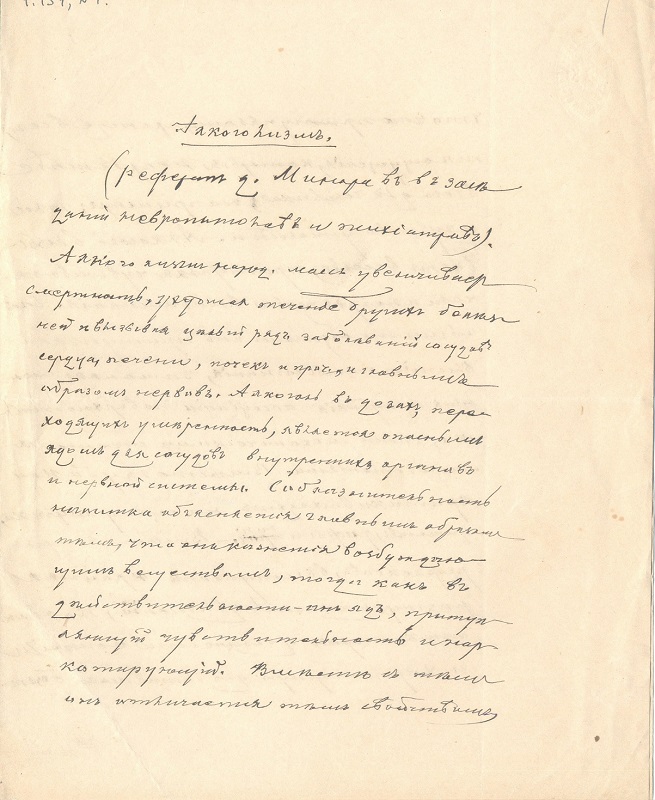 Алкоголизмъ.
(рефератъ д. Минора въ въ засѣ
даніи невропатологовъ и психіатровъ).
Алкоголизмъ народ. массъ увеличивает
смертность, ухудшая теченіе другихъ болѣз
ней и вызывая цѣлый рядъ заболѣваній сосудовъ
сердца, печени, почекъ и главнымъ
образомъ нервовъ. Алкоголь въ дозахъ, пере
ходящихъ умѣренность, является опаснымъ
ядомъ для сосудовъ внутреннихъ органовъ
и нервной системы. Соблазнительность
напитка объясняется главнымъ образомъ
тѣмъ, что онъ кажется возбуждаю
щимъ веществомъ, тогда какъ въ
дѣйствительности - онъ ядъ, притуп
ляющій чувствительность и нар
котирующій. Вмѣстѣ съ тѣмъ
онъ отличается тѣмъ свойствомъ,